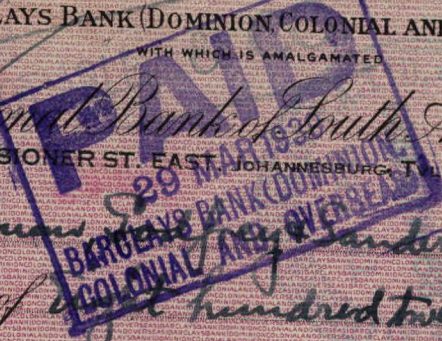 CLAYS BANK (DOMINION, COLONIAL AND
WITH WHICH IS AMALGAMATED
Bank of South
SIONER ST. EAST, JOHANNESBURG, TVL
PAID
29 MAR 193
BARCLAYS BANK (DOMINION,
COLONIAL AND OVERSEAS
Godfrey
of Eight hundred